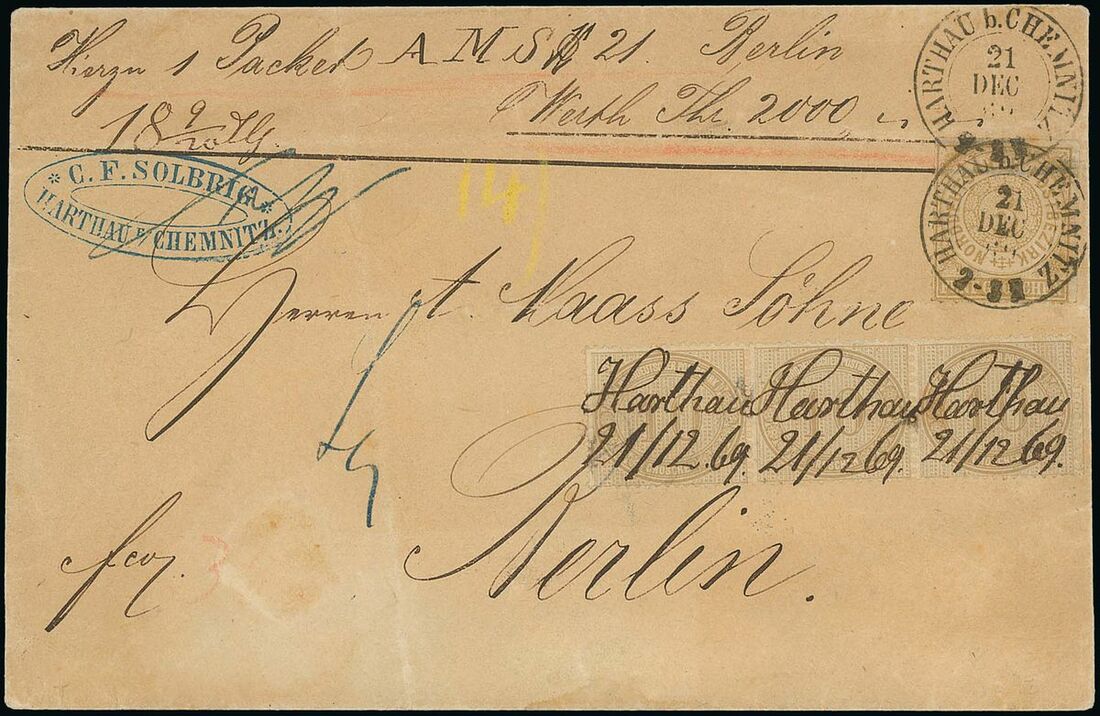 Hierzu 1 Packet AMS 21. Berlin
18 9/10 ℔. Werth Thr. 2000
* C. F. SOLBRIG *
HARTHAU b/ CHEMNITZ.
14
HARTHAU b. CHEMNITZ
21
DEC
HARTHAU b. CHEMNITZ
21
DEC
Herren A. Maass Söhne
Harthau Harthau Harthau
21/12.69. 21/12 69. 21/12 69.
fco. 3
Berlin.